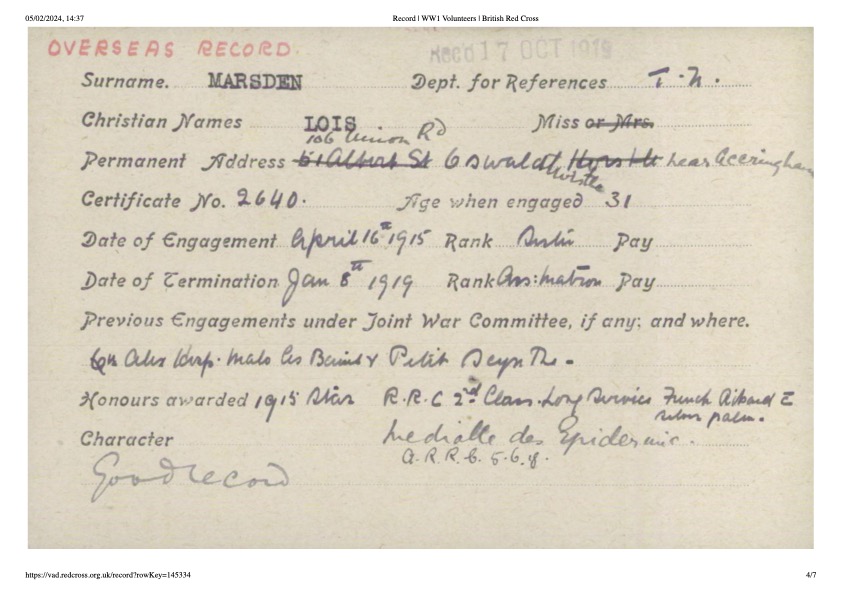 05/02/2024, 14:37 Record | WW1 Volunteers | British Red Cross
OVERSEAS RECORD. Rec'd 17 OCT 1919
Surname. MARSDEN Dept. for References T. N.
Christian Names LOIS Miss or Mrs.
106 Union Rd
Permanent Address 61 Albert St Oswaldtwistle near Accrington
Certificate No. 2640. Age when engaged 31
Date of Engagement April 16th 1915 Rank Sister Pay
Date of Termination Jan 8th 1919 Rank Ass: matron Pay
Previous Engagements under Joint War Committee, if any; and where.
Qn Alex Hosp. Malo les Bains & Petit Synthe -
Honours awarded 1915 Star R.R.C 2nd Class. Long Service French
silver palm.
Character Medialle des Epidemic.
A.R.R.C. 5.6.18.
Good record
https://vad.redcross.org.uk/record?rowKey=145334 4/7